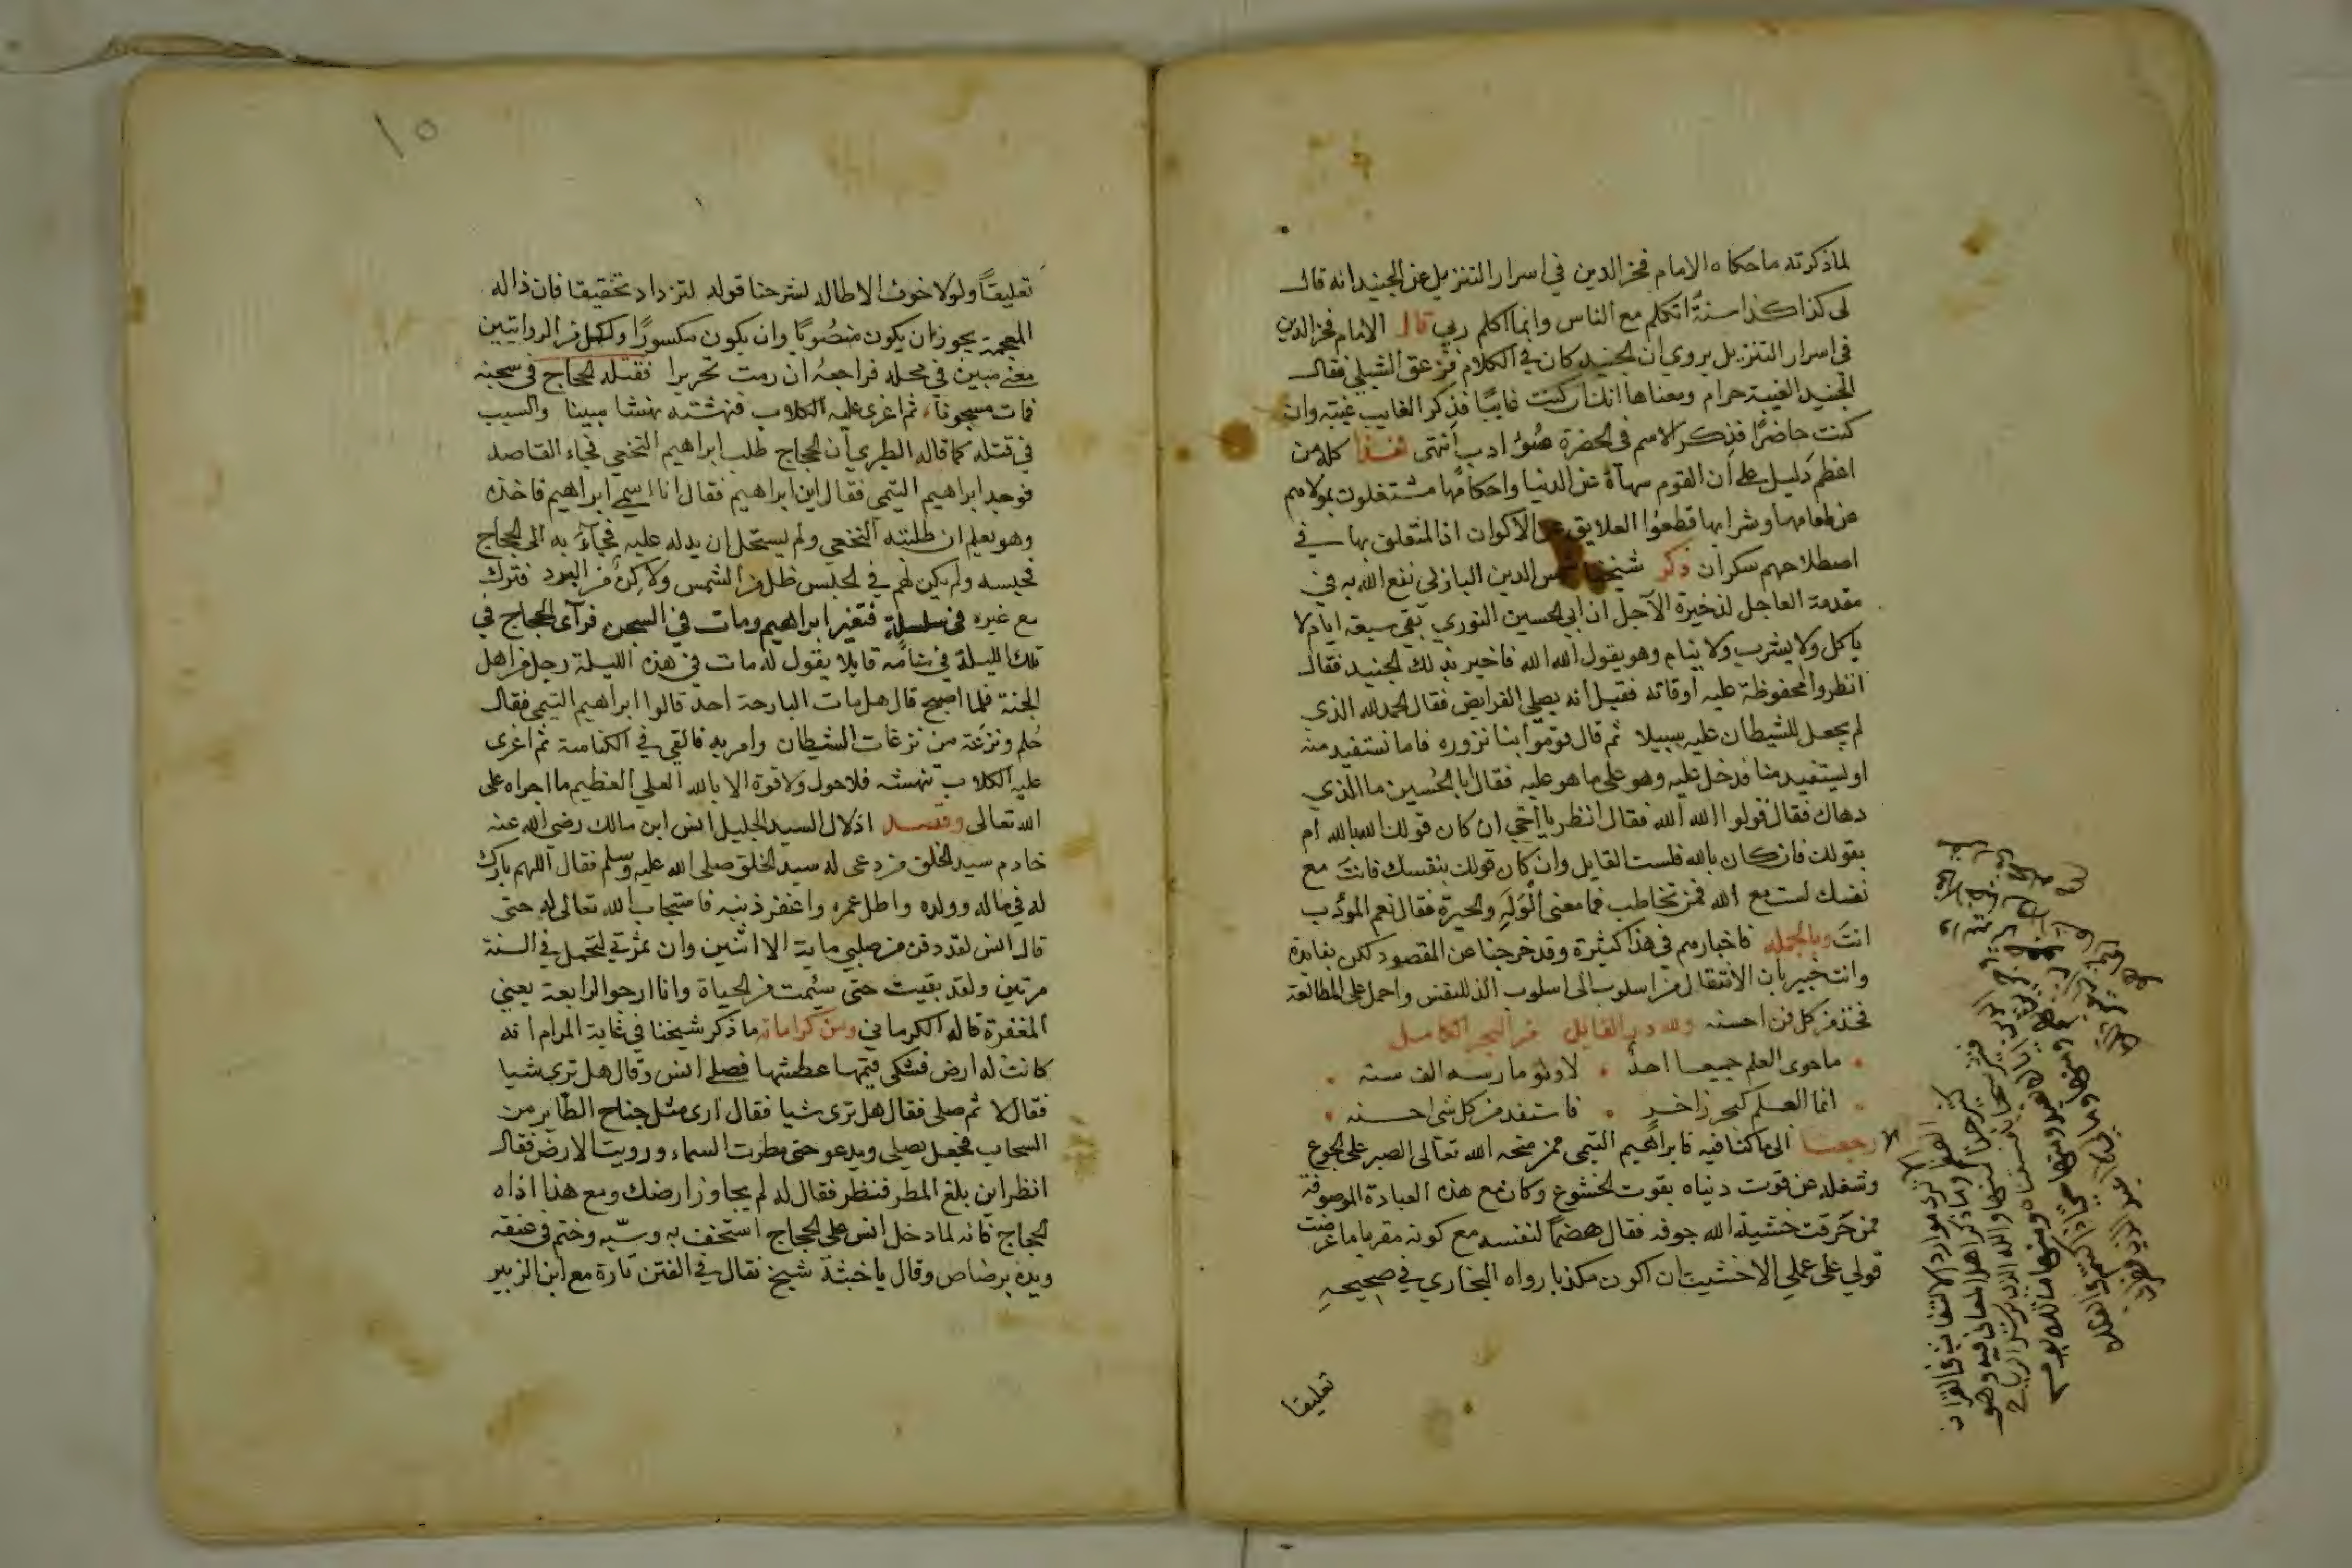 لما ذكرته ما حكاه الامام فخر الدين في اسرار التنزيل عن الجنيد انه قال
لي كذا كذا سنة اتكلم مع الناس وانما اكلم ربي قال الامام فخر الدين
في اسرار التنزيل يروى ان الجنيد كان في الكلام فزعق الشبلي فقال
الجنيد الغيبة حرام ومعناها انك ان كنت غايبًا فذكر الغايب غيبة وان
كنت حاضرًا فذكر الاسم في الحضرة سوء ادب انتهى فهذا كله من
اعظم دليل على ان القوم سهاة عن الدنيا واحكامها مشتغلون بمولاهم
عن طعامها وشرابها قطعوا العلايق عن الاكوان اذ المتعلق بها في
اصطلاحهم سكران ذكر شيخنا شمس الدين البازلي نفع الله به في
مقدمة العاجل لذخيرة الآجل ان ابي الحسين النوري بقي سبعة ايام لا
ياكل ولا يشرب ولا ينام وهو يقول الله الله فاخبر بذلك الجنيد فقال
انظروا امحفوظة عليه اوقاته فقيل انه يصلي الفرايض فقال الحمد لله الذي
لم يجعل للشيطان عليه سبيلا ثم قال قوموا بنا نزوره فاما نستفيد منه
او يستفيد منا فدخل عليه وهو على ما هو عليه فقال ابا الحسين ما الذي
دهاك فقال قولوا الله الله فقال انظر يا اخي ان كان قولك الله بالله ام
بقولك فان كان بالله فلست القايل وان كان قولك بنفسك فانت مع
نفسك لست مع الله فمن تخاطب فما معنى الوله والحيرة فقال نعم المودب
انت وبالجملة فاخبارهم في هذا كثيرة وقد خرجنا عن المقصود لكن بفايدة
وانت خبير بان الانتقال من اسلوب الى اسلوب الذ للنفس واحمل على المطالعة
فخذ من كل فن احسنه ولله در القايل من البحر الكامل
ما حوى العلم جميعا احد لا ولو مارسه الف سنه
انما العلم كبحر زاخر فاستفد من كل شي احسنه
رجعنا الى ما كنا فيه فابراهيم التيمي ممن منحه الله تعالى الصبر على الجوع
وشغله عن قوت دنياه بقوت الخشوع وكان مع هذه العبادة الموصوفة
ممن خرقت خشية الله جوفه فقال هضمًا لنفسه مع كونه مقربا ما عرضت
قولي على عملي الا خشيت ان اكون مكذبا رواه البخاري في صحيحه
تعليقا
١٥
تعليقًا ولولا خوف الاطالة لشرحنا قوله لتزداد تحقيقا فان ذاله
المعجمة يجوز ان يكون منصوبًا وان يكون مكسورًا ولكل من الروايتين
معنى مبين في محله فراجعه ان رمت تحريرا فقتله الحجاج في سجنه
فمات مسجونا ثم اغرى عليه الكلاب فنهشته نهشا مبينا والسبب
في قتله كما قاله الطبري ان الحجاج طلب ابراهيم النخعي فجاء القاصد
فوجد ابراهيم التيمي فقال اين ابراهيم فقال انا اسمي ابراهيم فاخذه
وهو يعلم ان طلبته النخعي ولم يستحل ان يدله عليه فجاء به الى الحجاج
فحبسه ولم يكن لهم في الحبس ظل من الشمس ولا كن من البرد فترك
مع غيره في سلسلة فتغير ابراهيم ومات في السجن فرآى الحجاج في
تلك الليلة في منامه قايلا يقول له مات في هذه الليلة رجل من اهل
الجنة فلما اصبح قال هل مات البارحة احد قالوا ابراهيم التيمي فقال
حلم ونزعة من نزغات الشيطان وامر به فالقي في الكناسة ثم اغرى
عليه الكلاب تنهشه فلا حول ولا قوة الا بالله العلي العظيم ما اجراه على
الله تعالى وقصد اذلال السيد الجليل انس ابن مالك رضي الله عنه
خادم سيد الخلق من دعى له سيد الخلق صلى الله عليه وسلم فقال اللهم بارك
له في ماله وولده واطل عمره واغفر ذنبه فاستجاب الله تعالى له حتى
قال انس لقد دفن من صلبي ماية الا اثنين وان ثمرتي لتحمل في السنة
مرتين ولقد بقيت حتى سئمت من الحياة وانا ارجو الرابعة يعني
المغفرة قاله الكرماني ومن كراماته ما ذكر شيخنا في غاية المرام انه
كانت له ارض فشكى قيمها عطشها فصلى انس وقال هل ترى شيا
فقال لا ثم صلى فقال هل ترى شيا فقال ارى مثل جناح الطاير من
السحاب فجعل يصلي ويدعو حتى مطرت السماء ورويت الارض فقال
انظر اين بلغ المطر فنظر فقال له لم يجاوز ارضك ومع هذا اذاه
الحجاج فانه لما دخل انس على الحجاج استخف به وسبه وختم في عنقه
ويده برصاص وقال يا خبثة شيخ نقال في الفتن تارة مع ابن الزبير